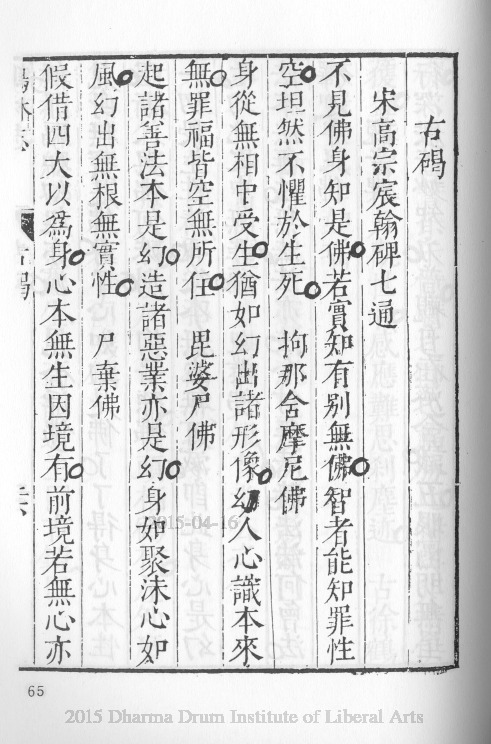 古碣
宋高宗宸翰碑七通
不見佛身知是佛若實知有別無佛智者能知罪性
空坦然不懼於生死 拘那舍摩尼佛
身從無相中受生猶如幻出諸形像幻人心識本來
無罪福皆空無所住 毘婆尸佛
起諸善法本是幻造諸惡業亦是幻身如聚沫心如
風幻出無根無實性 尸棄佛
假借四大以為身心本無生因境有前境若無心亦
古碣
65
2015-04-16
2015 Dharma Drum Institute of Liberal Arts